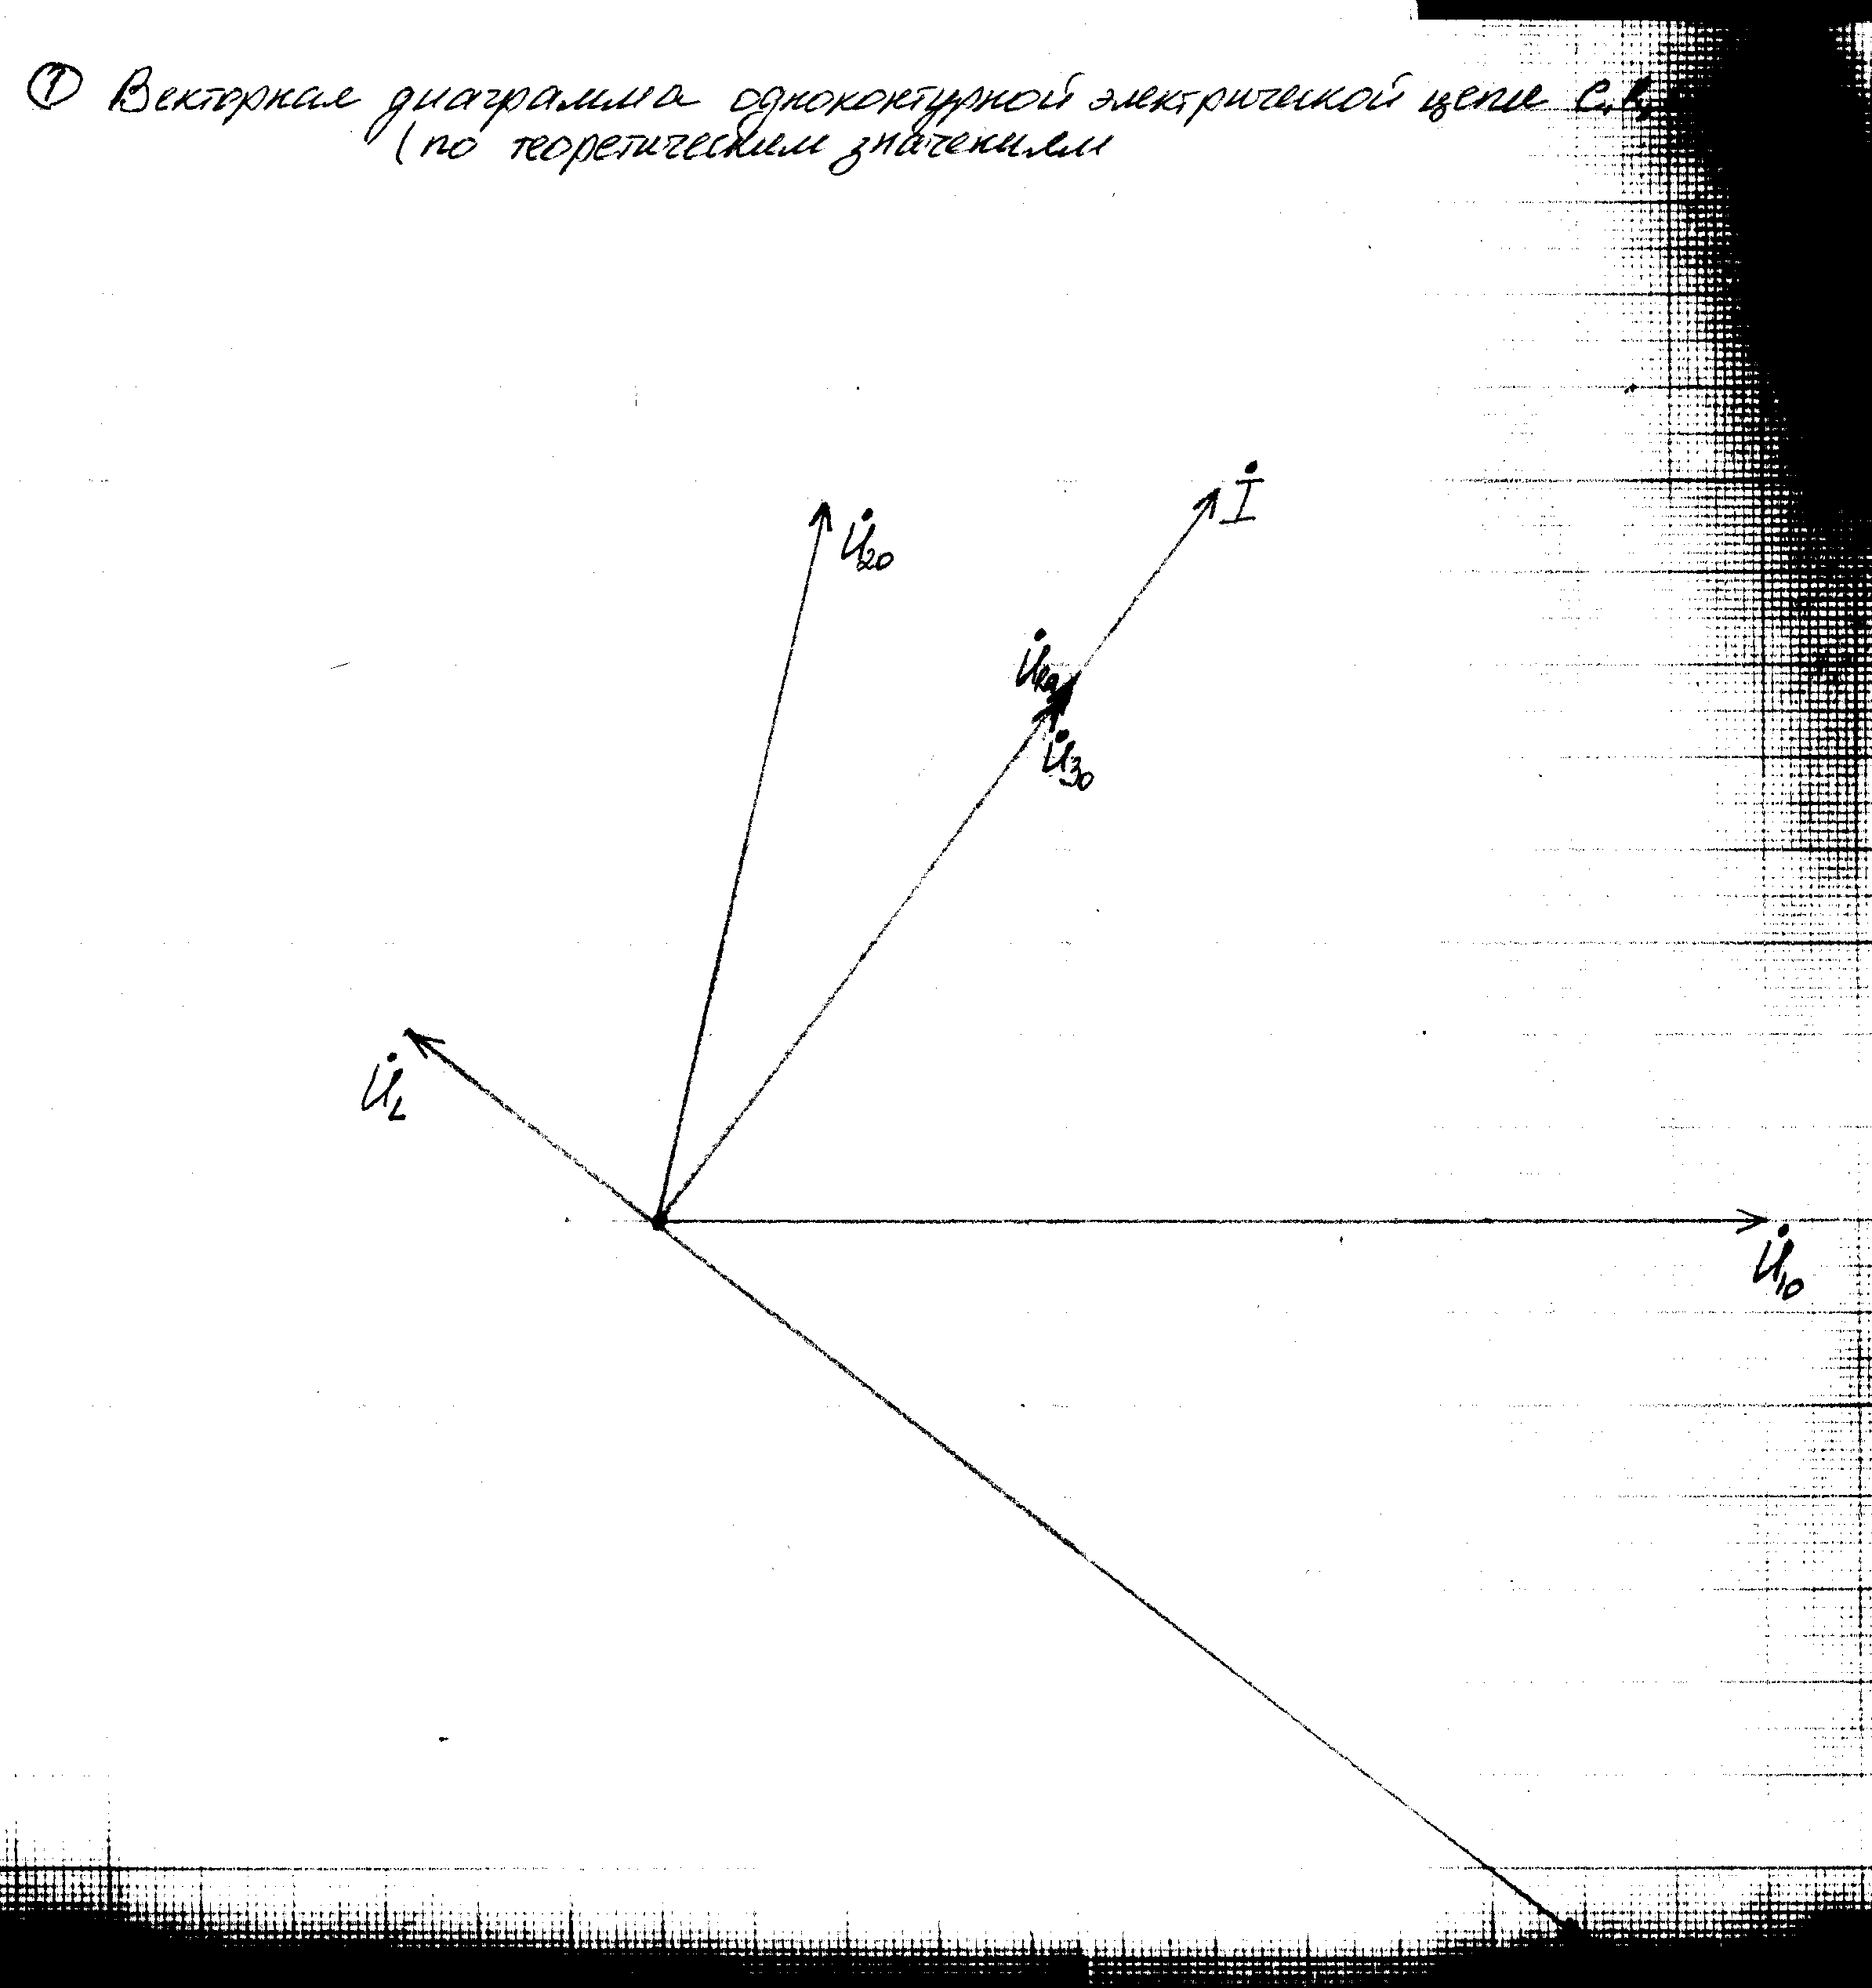 ① Векторная диаграмма одноконтурной электрической цепи
(по теоретическим значениям
İ
U̇₂₀
U̇₃₀
U̇L
U̇₁₀